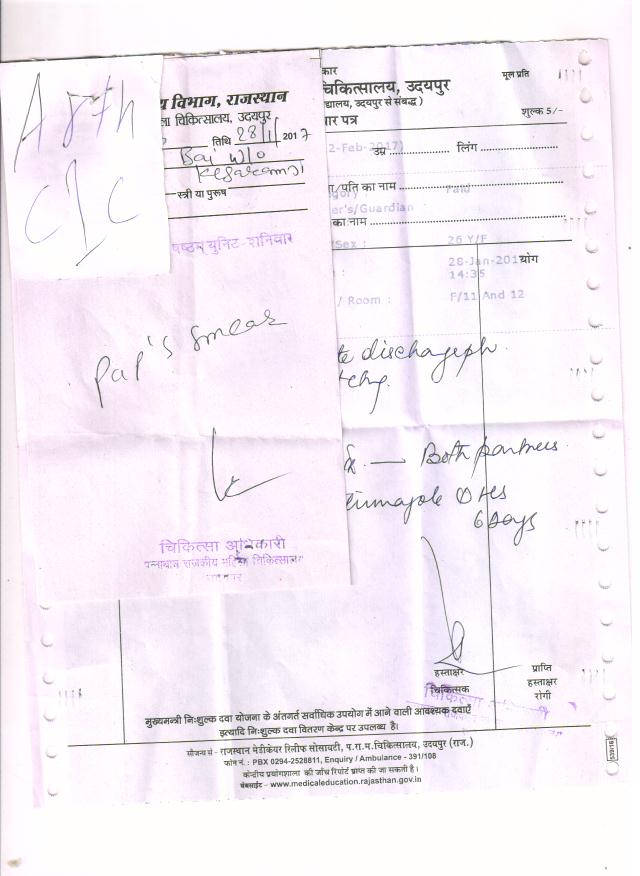 कार
चिकित्सालय, उदयपुर
मूल प्रति
उदयपुर से संबद्ध )
शुल्क 5/-
विभाग, राजस्थान
ला चिकित्सालय, उदयपुर
तिथि 28/1/2017
Bai w/o
स्त्री या पुरूष
2-Feb-2017)
उम्र लिंग
/पति का नाम
Paid
er's/Guardian
का नाम
Sex : 26 Y/F
28-Jan-201
योग
14:35
/ Room : F/11 And 12
षष्ठम् युनिट-शनिवार
Pap's smear
te discharge ph
tchy.
Both partners
6 Days
चिकित्सा अधिकारी
राजकीय महिला चिकित्सालय
हस्ताक्षर
चिकित्सक
प्राप्ति
हस्ताक्षर
रोगी
मुख्यमन्त्री निःशुल्क दवा योजना के अंतर्गत सर्वाधिक उपयोग में आने वाली आवश्यक दवाऐं
इत्यादि निःशुल्क दवा वितरण केन्द्र पर उपलब्ध है।
सौजन्य से - राजस्थान मेडीकेयर रिलीफ सोसायटी, प.रा.म.चिकित्सालय, उदयपुर (राज.)
फोन नं. : PBX 0294-2528811, Enquiry / Ambulance - 391/108
केन्द्रीय प्रयोगशाला की जाँच रिपोर्ट प्राप्त की जा सकती है।
वेबसाईट - www.medicaleducation.rajasthan.gov.in